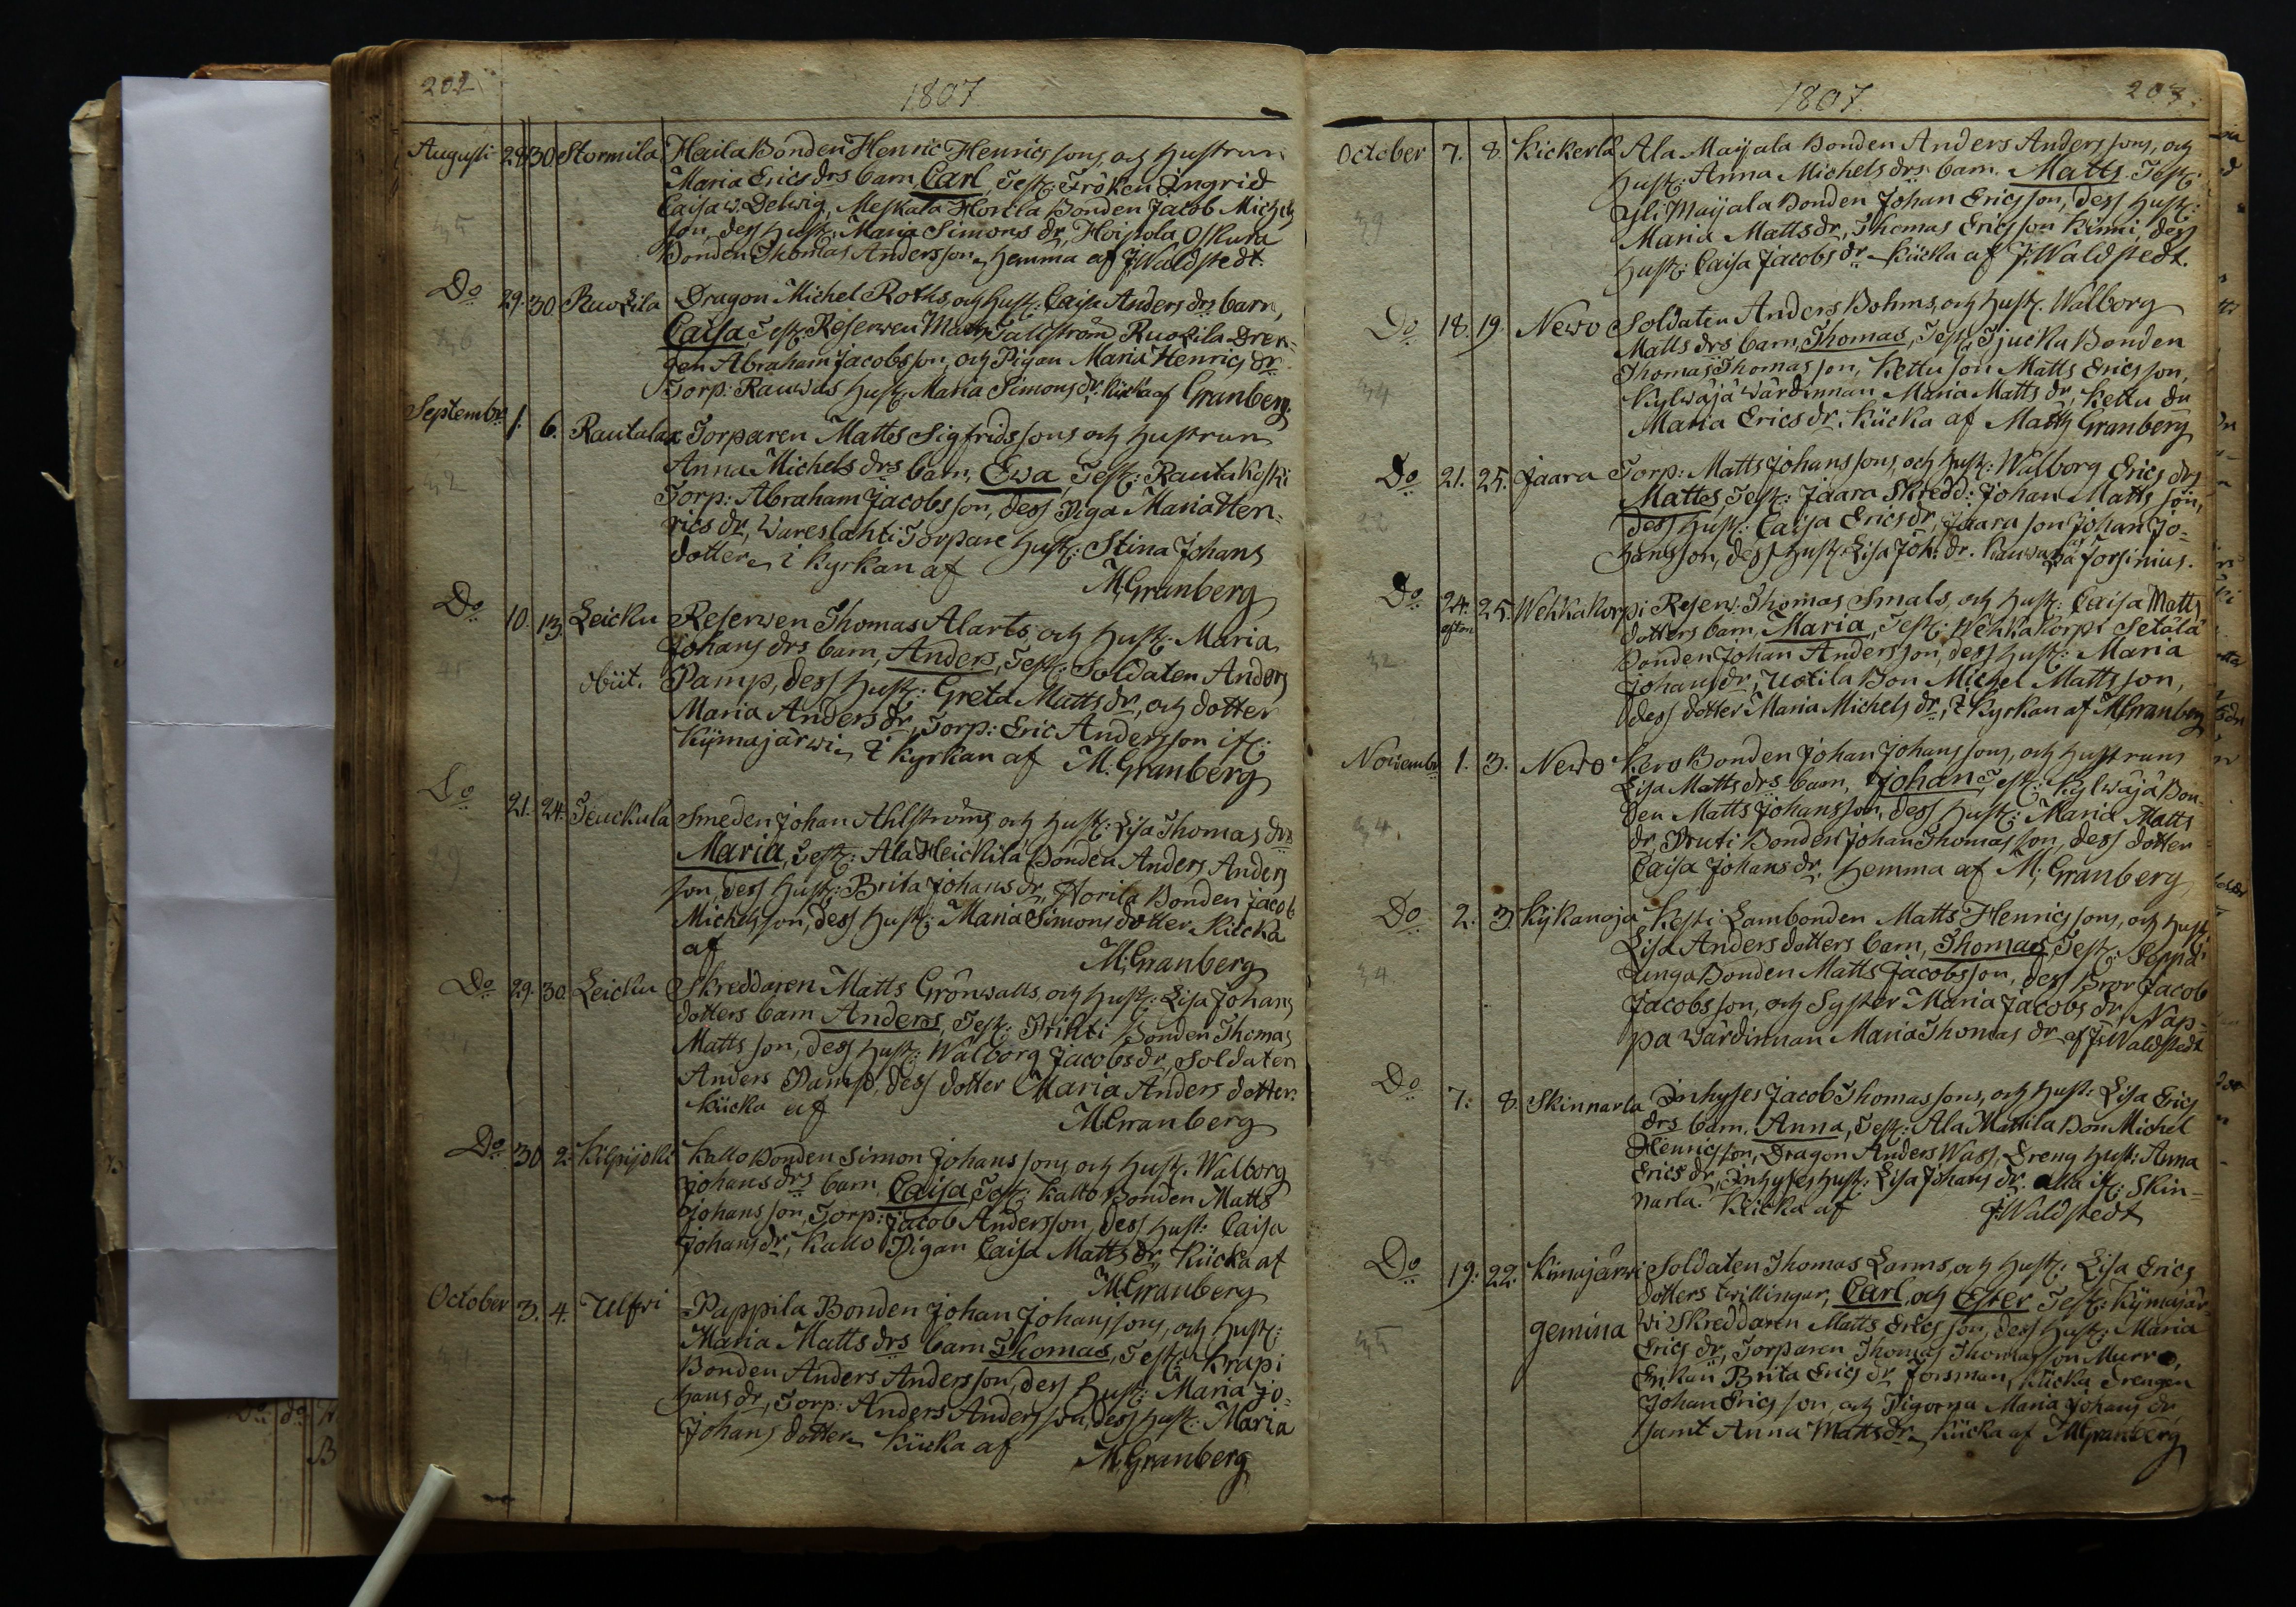 202
1807
Augusti 29 30 Stormila Heila Bonden Henric Henrics sons, och hustrun
Maria Erics drs barn, Carl, Test: Fröken Ingrid
Caisa v. Delwig, Meskala Horila Bonden Jacob Michels
son, dess hust: Maria Simons dr, Hoipola Oskura
Bonden Thomas Andersson, hemma af J: Waldstedt.
Do 29. 30. Ruokila Dragon Michel Roths, och hust: Caisa Anders drs barn,
Caisa, Test: Reserven Matts Tallström Ruokila Dren-
gen Abraham Jacobsson, och Pigan Maria Henrics dr
Torp: Rauwas hust: Maria Simons dr. kücka af Granberg.
Septembr 1. 6. Rautalax Torparen Matts Sigfrids sons och hustrun
Anna Michels drs barn, Ewa, Test: Rautakoski
Torp: Abraham Jacobsson, dess Piga Maria Hen-
rics dr, Wareslahti Torpare hust: Stina Johans
dotter, i kyrkan af
M: Granberg
Do 10. 13. Leicku Reserven Thomas Alarts, och hust: Maria
Johans drs barn, Anders, Test: Soldaten Anders
obiit. Pamp, dess hust: Greta Matts dr, och dotter
Maria Anders dr, Torp: Eric Andersson if:
Kijmajärwi, i kyrkan af M: Granberg
Do 21. 24. Teuckula Smeden Johan Ahlströms och hust: Lisa Thomas drs
Maria, Test: Ala Heickilä Bonden Anders Anders
son, dess hust: Brita Johans dr, Horila Bonden Jacob
Michelsson, dess hust: Maria Simons dotter kücka
af
M: Granberg
Do 29. 30. Leicku Skreddaren Matts Grönwalls, och hust: Lisa Johans
dotters barn Anders, Test: Prihti Bonden Thomas
Matts son, dess hust: Walborg Jacobs dr, Soldaten
Anders Pamp, dess dotter Maria Anders dotter.
kücka af
M: Granberg
Do 30 2. Kilpijoki Kallo Bonden Simon Johans sons och hust: Walborg
Johans drs barn, Caisa, Test: Kallo Bonden Matts
Johansson, Torp: Jacob Andersson, dess hust: Caisa
Johans dr, Kallo Pigan Caisa Matts dr, kücka af
M: Granberg
October 3. 4. Ulfwi Pappila Bonden Johan Johans sons, och hust:
Maria Matts drs barn Thomas, Test: Krapi
Bonden Anders Andersson, dess hust: Maria Jo-
hans dr, Torp: Anders Andersson, dess hust: Maria
Johans dotter, kücka af
M: Granberg
1807
203.
October 7. 8. Kickerla Ala Maijala Bonden Anders Anders sons, och
hust: Anna Michels drs barn. Matts. Test:
Yli Maijala Bonden Johan Ericsson, dess hust:
Maria Matts dr, Thomas Ericsson Kinni, dess
hust: Caisa Jacobs dr kücka af J: Waldstedt.
Do 18. 19. Newo Soldaten Anders Bohms, och hust. Walborg
Matts drs barn, Thomas, Test: Tjucka Bonden
Thomas Thomasson, Kettu son Matts Ericsson,
Kylwäjä wärdinnan Maria Matts dr, Kettu dr
Maria Erics dr. kücka af Matts Granberg
Do 21. 25. Jaara Torp: Matts Johans sons, och hust: Walborg Erics drs
Matts, Test: Jaara Skredd: Johan Matts son,
dess hust: Caisa Erics dr, Jaara son Johan Jo-
hansson, dess hust: Lisa Joh: dr. af Forsinius.
Do 24. afton 25. Wehkakorpi Reserv: Thomas Smals, och hust: Caisa Matts
dotters barn, Maria, Test: Wehkakorpi Setälä
Bonden Johan Andersson, dess hust: Maria
Johans dr, Uotila Bon Michel Mattsson,
dess dotter Maria Michels dr, i kyrkan af M: Granberg
Novembr 1. 3. Newo Kero Bonden Johan Johans sons, och hustruns
Lisa Matts drs barn, Johan, Test: Kylwäjä Bon-
den Matts Johansson, dess hust: Maria Matts
dr, Pruti Bonden Johan Thomasson, dess dotter
Caisa Johans dr. hemma af M: Granberg
Do 2. 3. Kijkanoja Kesti Lambonden Matts Henrics sons, och hust:
Lisa Anders dotters barn, Thomas, Test: Seppä
unga Bonden Matts Jacobsson, dess Bror Jacob
Jacobsson, och Syster Maria Jacobs dr, Nap-
pa wärdinnan Maria Thomas dr af J: Waldstedt
Do 7. 8. Skinnarla Inhyses Jacob Thomas sons, och hust: Lisa Erics
drs barn. Anna, Test: Ala Mattila Bon Michel
Henricsson, Dragon Anders Wass, Dreng hust: Anna
Erics dr, Inhyses hust: Lisa Johans dr. alla if: Skin-
narla. kücka af
J: Waldstedt
Do 19. 22. Kimajärwi Soldaten Thomas Larms, och hust: Lisa Erics
dotters twillingar, Carl, och Ester Test: Kijmajär-
gemina wi Skreddaren Matts Ericsson, dess hust: Maria
Erics dr, Torparen Thomas Thomasson Murro,
Enkan Brita Erics dr Forsman, kücka drengen
Johan Ericsson, och Pigorna Maria Johans dr
samt Anna Matts dr, kücka af M: Granberg